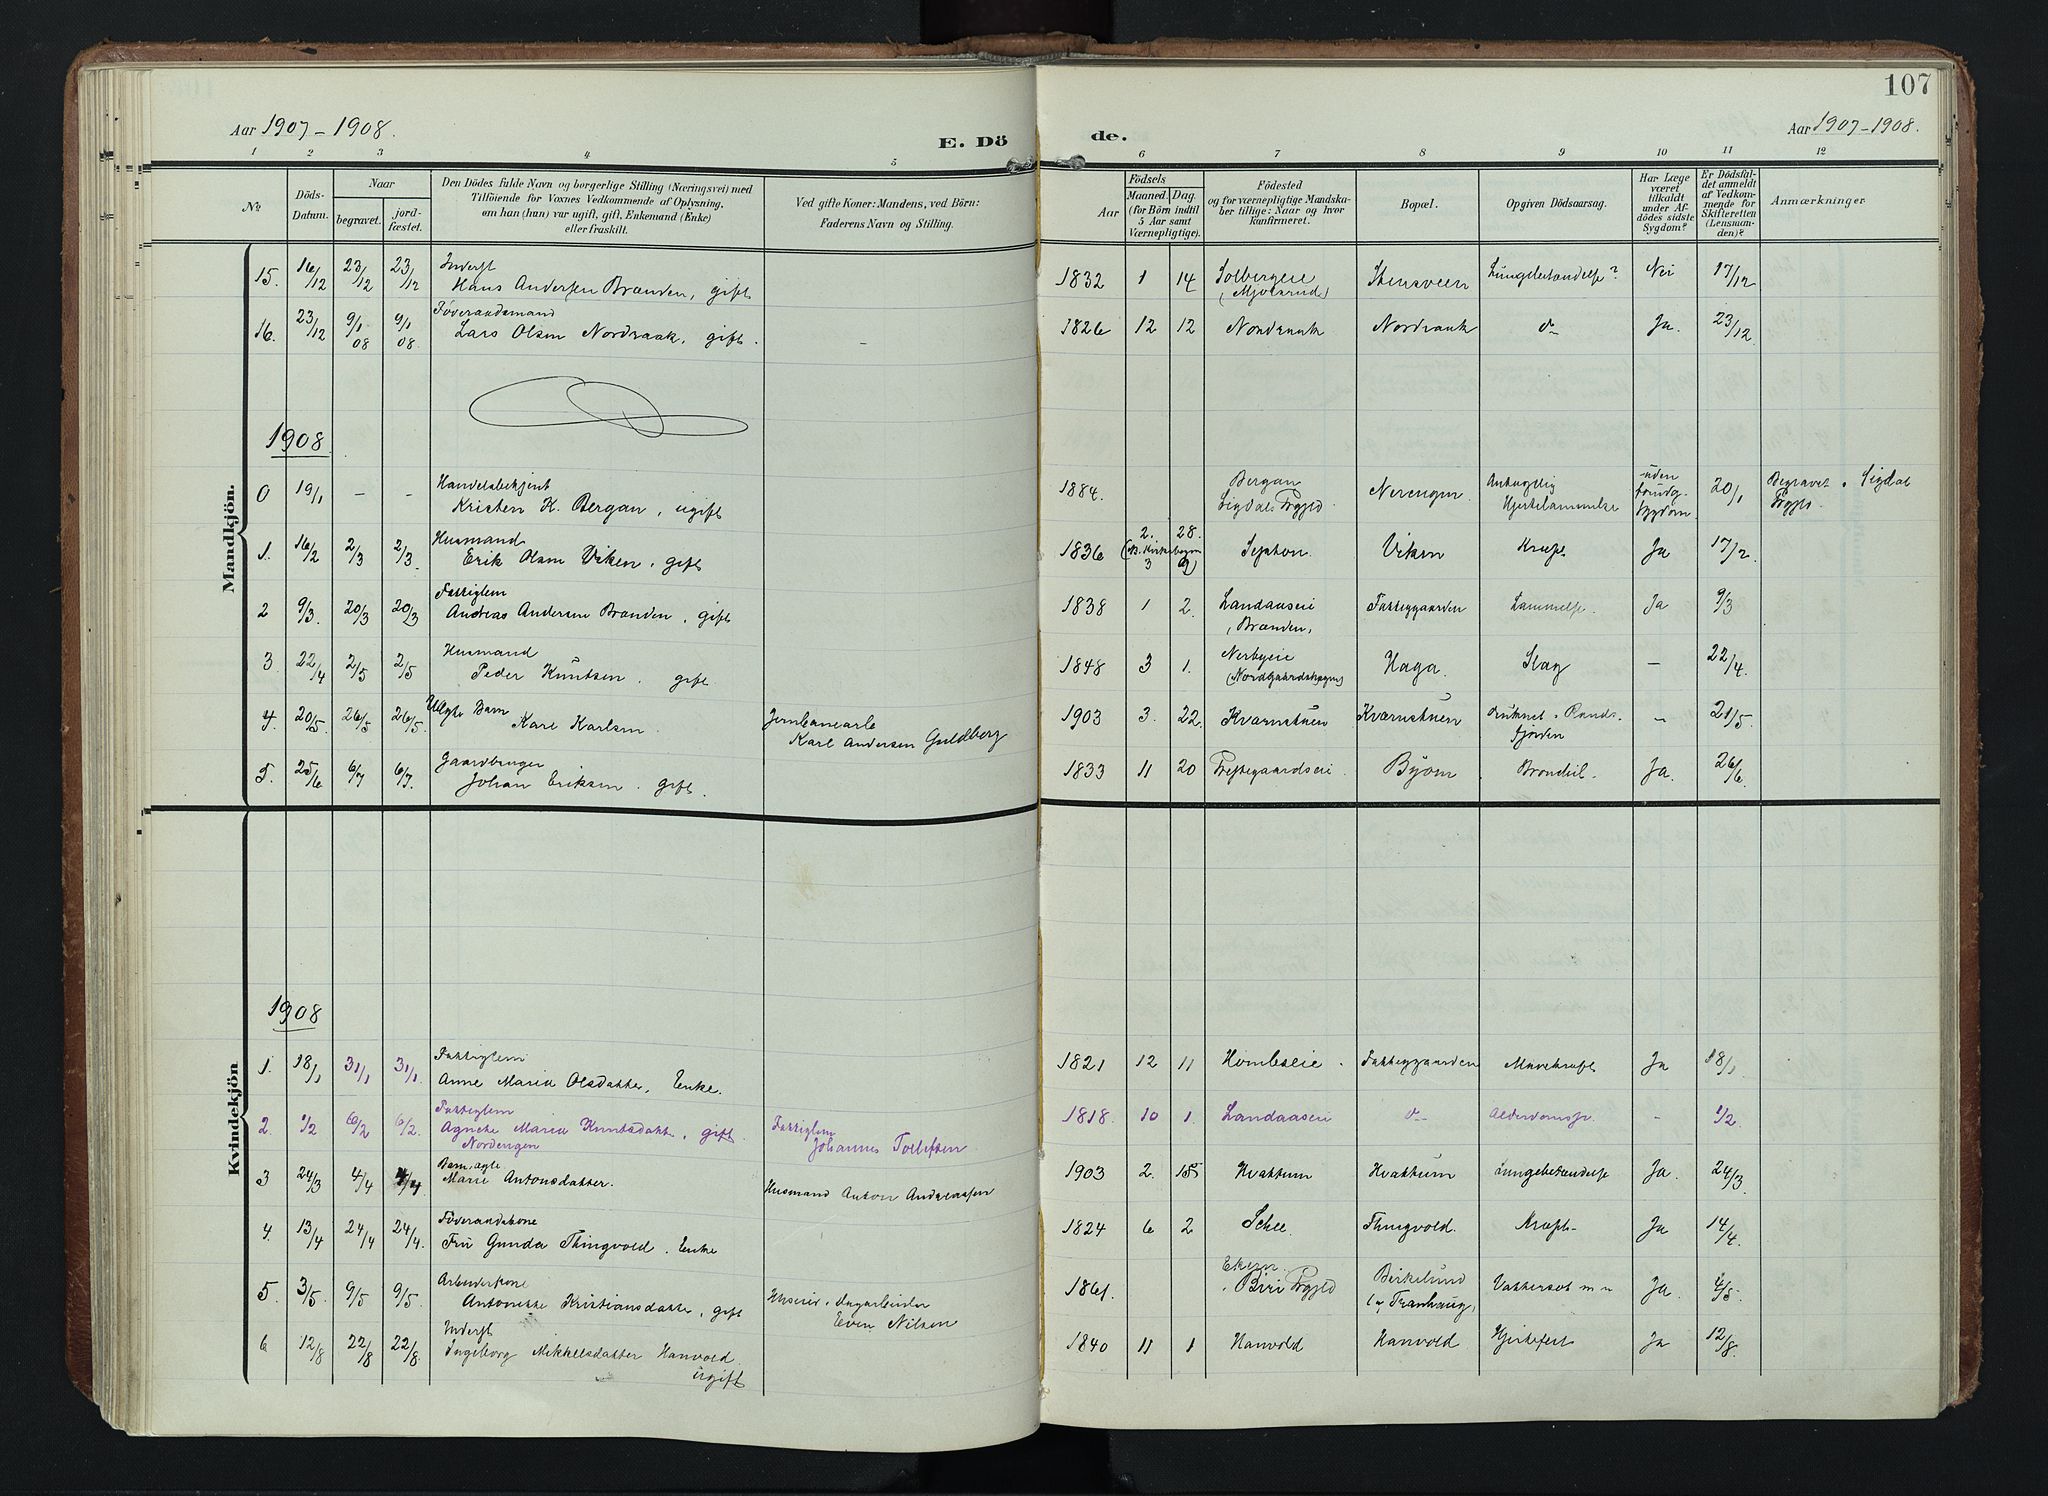 107
Aar 1907-1908.
E. Dö
de.
Aar 1907-1908.
1 2 3 4 5 6 7 8 9 10 11 12
No.
Döds-
Datum.
Naar
begravet.
jord-
fæstet.
Den Dödes fulde Navn og borgerlige Stilling (Næringsvei) med
Tilföiende for Voxnes Vedkommende af Oplysning,
om han (hun) var ugift, gift, Enkemand (Enke)
eller fraskilt.
Ved gifte Koner: Mandens, ved Börn:
Faderens Navn og Stilling.
Födsels
Aar
Maaned. Dag.
(for Börn indtil
5 Aar samt
Værnepligtige).
Födested
og for værnepligtige Mandska-
ber tillige: Naar og hvor
konfirmeret.
Bopæl.
Opgiven Dödsaarsag.
Har Læge
været
tilkaldt
under Af-
dödes sidste
Sygdom?
Er Dödsfal-
det anmeldt
af Vedkom-
mende for
Skifteretten
(Lensman-
den)?
Anmærkninger
Mandkjön.
15. 16/12 23/12 23/12 Inderst
Hans Andersen Brænden, gift 1832 1 14 Solbergeie Stensveen Lungebetændelse? Nei 17/12
(Mjölsrud)
16. 23/12 9/1 08 9/1 08 Föderaadsmand
Lars Olsen Nordraak, gift. - 1826 12 12 Nordraak Nordraak do Ja. 23/12
1908
0 19/1 - - Handelsbetjent
Kristen K. Bergan, ugift 1884. Bergan
Sigdals Prgjld. Nerengen Hjertelammelse uden
sygdom 20/1 Begravet i Sigdal
Prgjld.
1. 16/2 2/3 2/3 Husmand
Erik Olsen Viken, gift 1836 2. 28. Viken Kræft Ja 17/2
2 9/3. 20/3 20/3 Fattiglem
Andreas Andersen Brænden, gift 1838 1 2. Landaaseie Fattiggaarden Lammelse. Ja 9/3
(Brænden)
3. 22/4 2/5 2/5 Husmand
Peder Knutsen. gift. 1848 3 1. Nerbyeie Haga. Slag - 22/4.
4. 20/5. 26/5 26/5. Uægte Barn
Kåre Karlsen. Jernbanearb.
Karl Andersen Guldberg 1903 3. 22. Kværnstuen Kværnstuen Druknet i Rands-
fjorden - 21/5.
5. 25/6 6/7 6/7. Gaardbruger
Johan Eriksen. gift. 1833 11 20 Prestegaardseie. Byom Brandbil. Ja. 26/6
Kvindekjön
1908
1. 18/1 31/1 31/1. Fattiglem
Anne Maria Olsdatter, Enke. 1821 12 11 Homleseie. Fattiggaarden Mavekræft Ja 18/1
2. 1/2 6/2 6/2. Fattiglem
Agnethe Maria Knutsdatter, gift.
Nordengen Fattiglem
Johannes Tollefsen 1818. 10 1. Landaaseie do Alderdomssv. - 1/2
3 24/3 4/4 4/4 Barn, ægte
Marie Antonsdatter. Husmand Anton Andreassen 1903 2. 15 Hvattum Hvattum Lungebetændelse Ja. 24/3.
4. 13/4 24/4 24/4. Föderaadskone
Fru Gunda Thingvold. Enke 1824 6 2 Schee Thingvold. Kræft Ja 14/4.
5. 3/5. 9/5 9/5. Arbeiderkone
Antonette Kristiansdatter, gift Huseier, Dagarbeider
Even Nilsen 1861. Biri Prgjld Birkelund
(u/ Tranhaug) Vattersot m m Ja. 4/5.
6 12/8 22/8 22/8. Inderst
Ingeborg Mikkelsdatter Hanvold.
ugift 1840 11 1 Hanvold Hanvold Hjertefeil Ja 12/8.